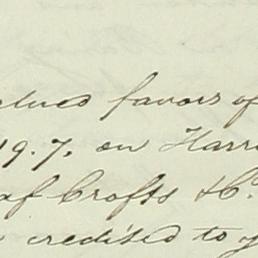 favors of
19.7. on Harri
af Crofts & Co.
credited to y